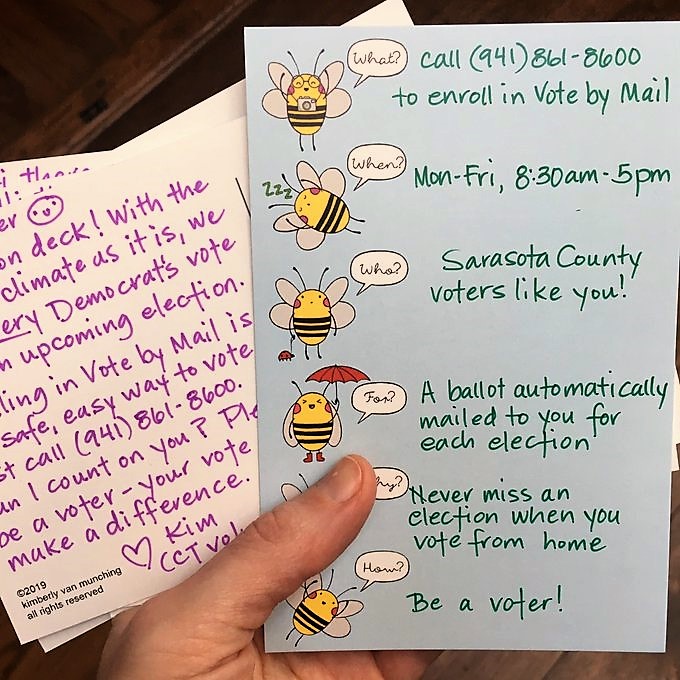 What? call (941) 861-8600
to enroll in Vote by Mail
zzz
When? Mon-Fri, 8:30am-5pm
Who? Sarasota County
voters like you!
For? A ballot automatically
mailed to you for
each election
hy? Never miss an
election when you
vote from home
How? Be a voter!
er
on deck! With the
climate as it is, we
ery Democrat's vote
n upcoming election.
ling in Vote by Mail is
safe, easy way to vote
st call (941) 861-8600.
an I count on you? Ple
be a voter-your vote
make a difference.
♡ Kim
CCT vol
©2019
kimberly van munching
all rights reserved